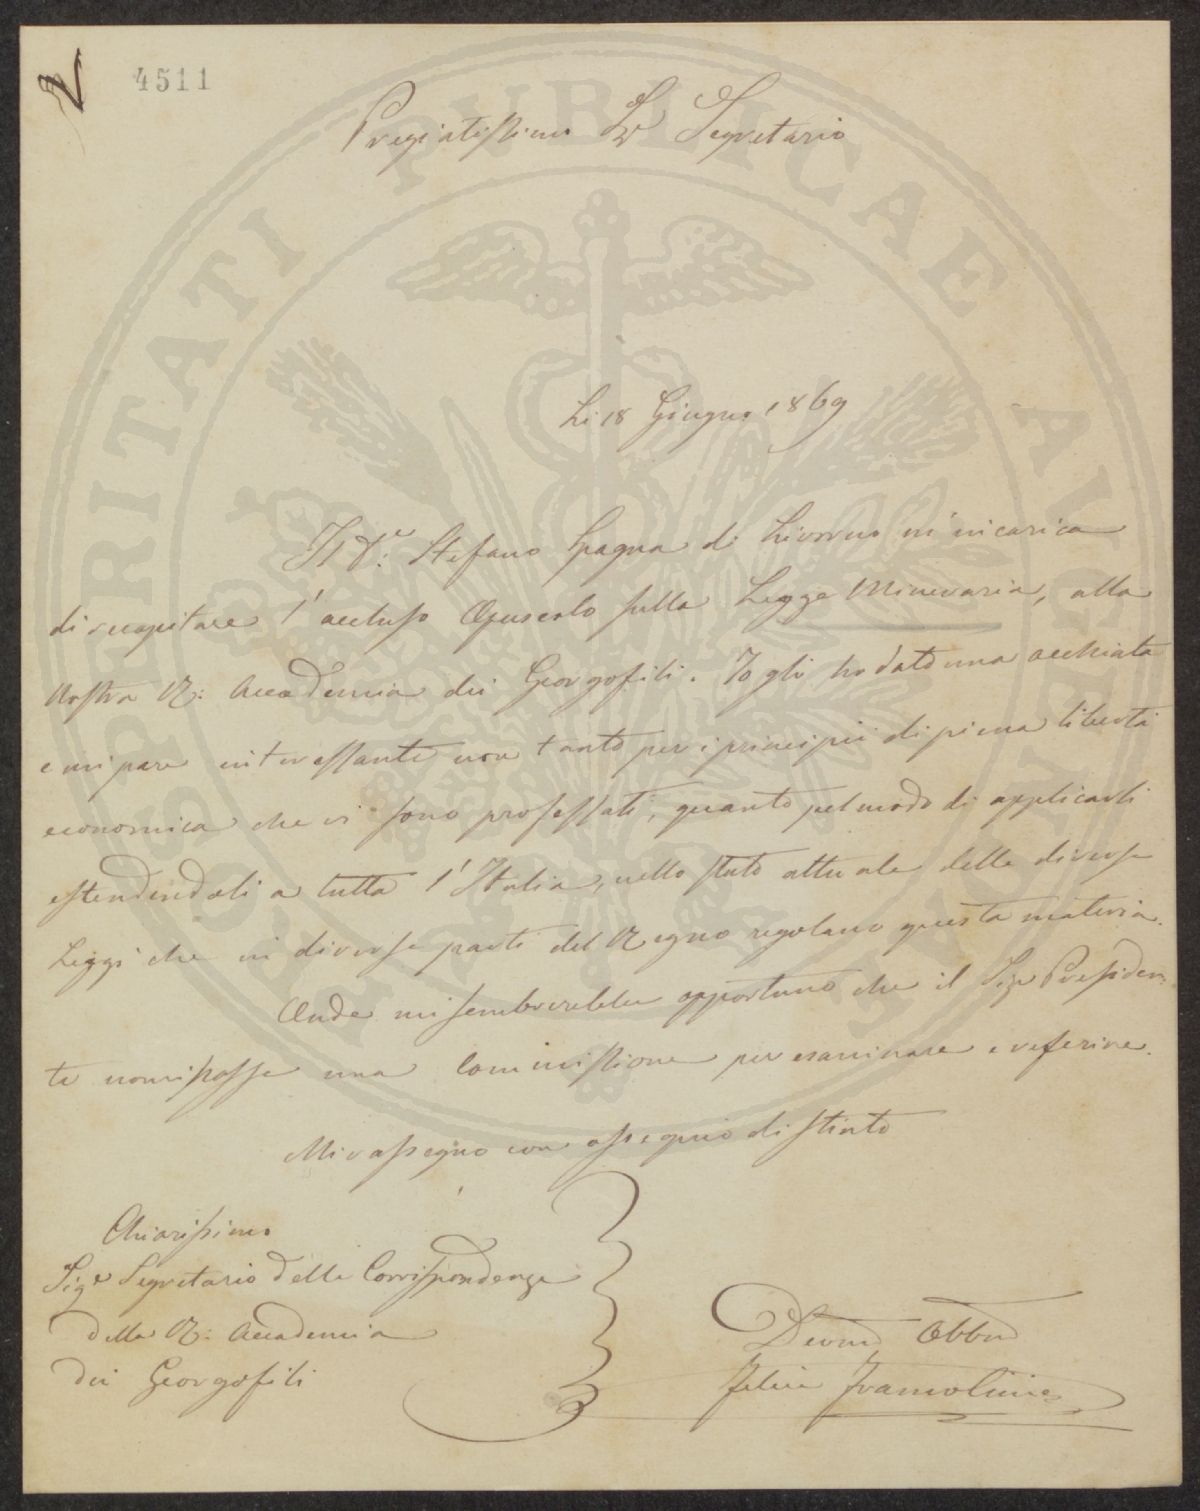 4511
Pregiatissimo Sr Segretario
Li 18 Giugno 1869
Il Dre. Stefano Spagna di Livorno m'incarica
di recapitare l'accluso Opuscolo sulla Legge Mineraria, alla
nostra R: Accademia dei Georgofili. Io gli ho dato una occhiata
e mi pare interessante non tanto per i principii di piena libertà
economica che vi sono professati, quanto pel modo di applicarli
estendendoli a tutta l'Italia, nello stato attuale delle diverse
Leggi che in diverse parti del Regno regolano questa materia.
Onde mi sembrerebbe opportuno che il Sigr Presiden
te nominasse una Commissione per esaminare e referire.
Mi rassegno con ossequio distinto
Chiarissimo
Sigr Segretario delle Corrispondenze
della R: Accademia
dei Georgofili
Devmo Obbmo
Felice Francolini
PROSPERITATI PUBLICAE AUGENDAE